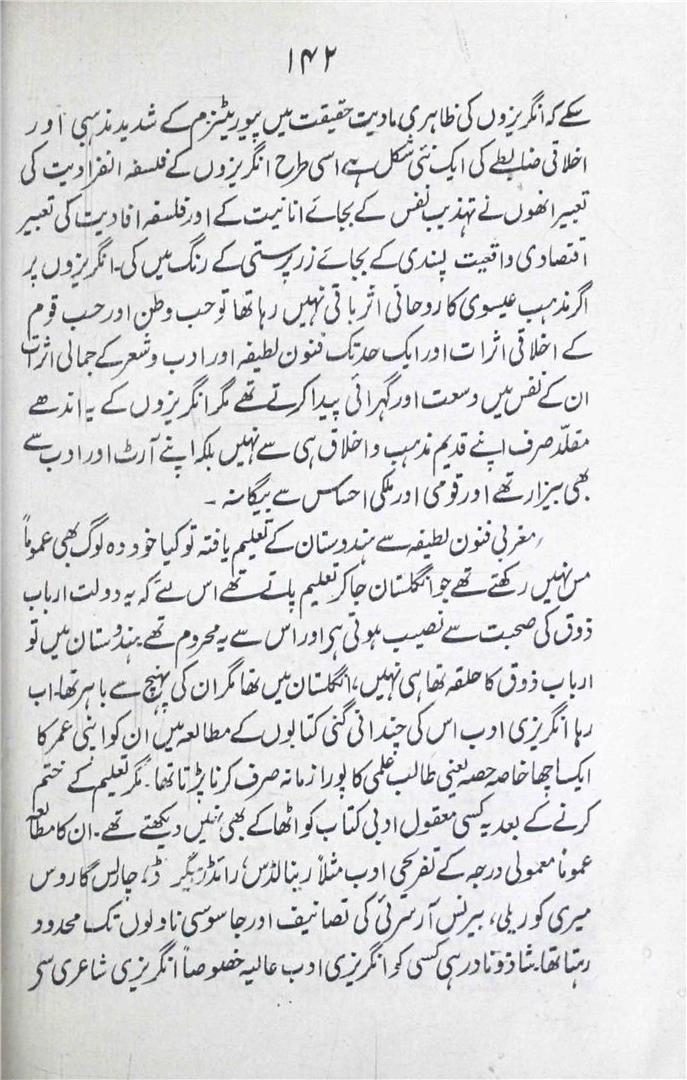 ۱۴۲
سکے کہ انگریزوں کی ظاہری مادیت حقیقت میں پیوریٹنزم کے شدید مذہبی اور
اخلاقی ضابطے کی ایک نئی شکل ہے اسی طرح انگریزوں کے فلسفہ انفرادیت کی
تعبیر انھوں نے تہذیب نفس کے بجائے انانیت کے اور فلسفہ افادیت کی تعبیر
اقتصادی واقعیت پسندی کے بجائے زر پرستی کے رنگ میں کی۔ انگریزوں پر
اگر مذہب عیسوی کا روحانی اثر باقی نہیں رہا تھا تو حب وطن اور حب قوم
کے اخلاقی اثرات اور ایک حد تک فنون لطیفہ اور ادب و شعر کے جمالی اثرات
ان کے نفس میں وسعت اور گہرائی پیدا کرتے تھے مگر انگریزوں کے یہ اندھے
مقلّد صرف اپنے قدیم مذہب و اخلاق ہی سے نہیں بلکہ اپنے آرٹ اور ادب سے
بھی بیزار تھے اور قومی اور ملکی احساس سے بیگانہ ۔
مغربی فنون لطیفہ سے ہندوستان کے تعلیم یافتہ تو کیا خود وہ لوگ بھی عموماً
مس نہیں رکھتے تھے جو انگلستان جا کر تعلیم پاتے تھے اس لئے کہ یہ دولت ارباب
ذوق کی صحبت سے نصیب ہوتی ہے اور اس سے یہ محروم تھے۔ ہندوستان میں تو
ارباب ذوق کا حلقہ تھا ہی نہیں، انگلستان میں تھا مگر ان کی پہنچ سے باہر تھا۔ اب
رہا انگریزی ادب اس کی چند انی گنی کتابوں کے مطالعہ میں ان کو اپنی عمر کا
ایک اچھا خاصہ حصہ یعنی طالب علمی کا پورا زمانہ صرف کرنا پڑتا تھا۔ مگر تعلیم کے ختم
کرنے کے بعد یہ کسی معقول ادبی کتاب کو اٹھا کے بھی نہیں دیکھتے تھے۔ ان کا مطالعہ
عموماً معمولی درجہ کے تفریحی ادب مثلاً رینالڈس، رائڈر ہیگرڈ، چارلس گاروس
میری کوریلی، بیرنس آرسزئی کی تصانیف اور جاسوسی ناولوں تک محدود
رہتا تھا۔ شاذ و نادر ہی کسی کو انگریزی ادب عالیہ خصوصاً انگریزی شاعری سے